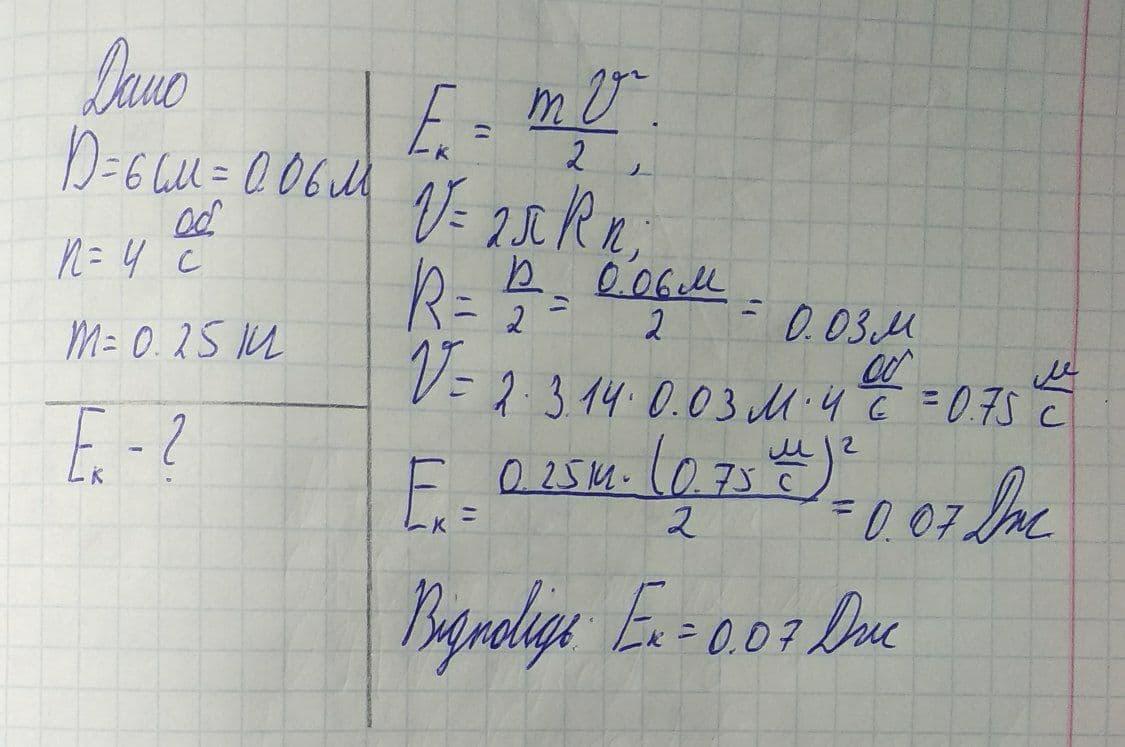 Дано
D=6см=0.06м
n=4 об/с
m=0.25кг
Eк - ?
Eк = mv²/2;
v= 2πRn;
R= D/2 = 0.06м/2 = 0.03м
v= 2·3.14·0.03м·4 об/с =0.75 м/с
Eк = 0.25кг·(0.75 м/с)²/2 = 0.07 Дж
Відповідь: Eк=0.07 Дж